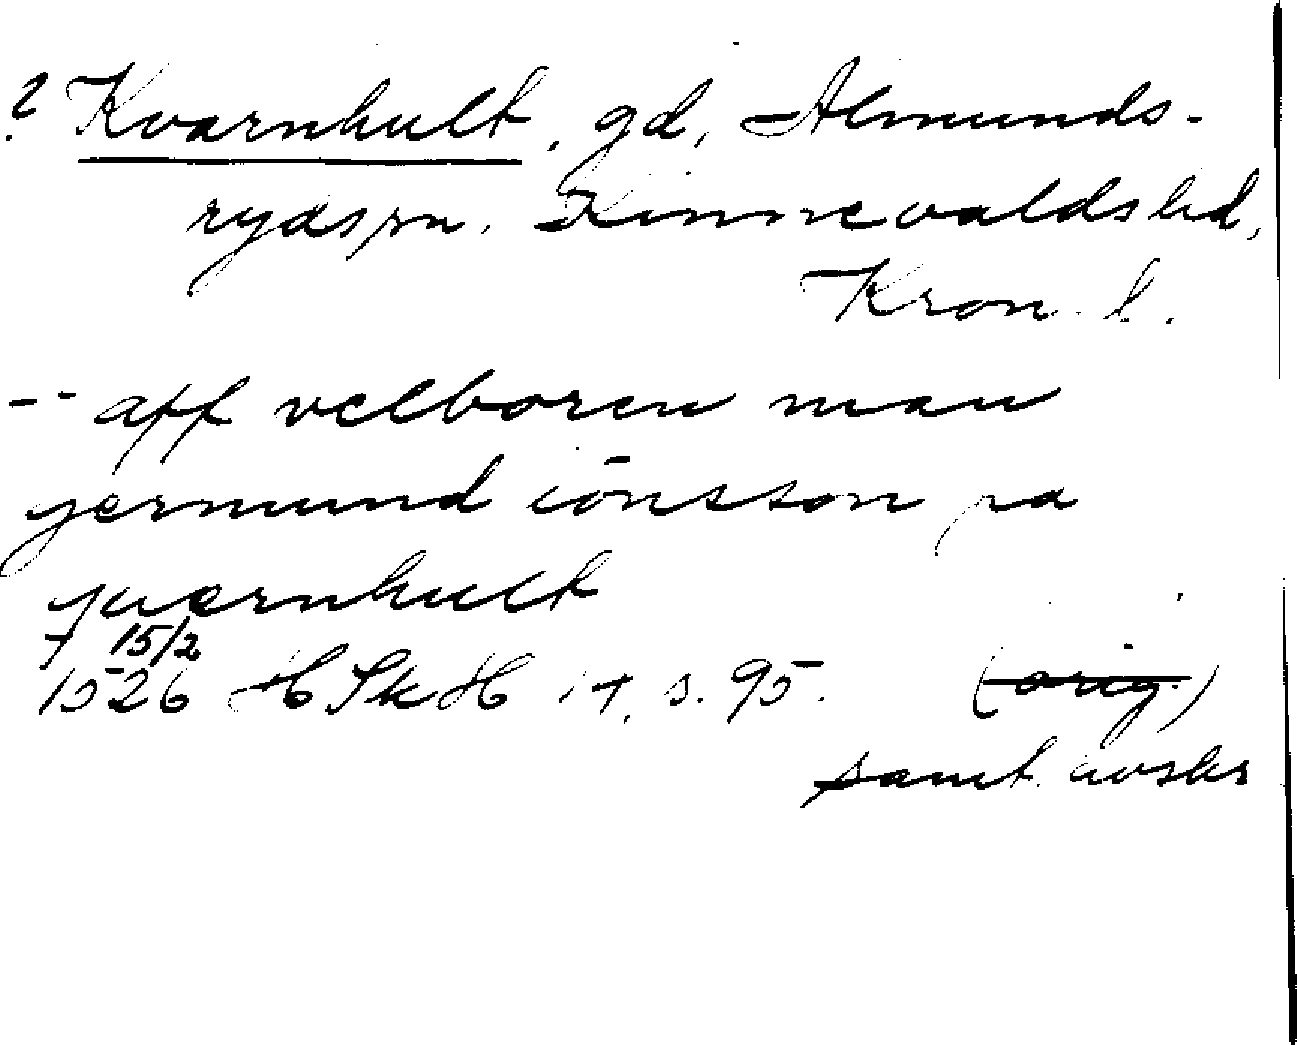 ? Kvarnhult, gd, Almunds-
rydssn. Kinnevaldshd,
Kron. l.
-- aff velboren man
germund iönsson pa
quernhult
† 15/2
1526 HSkH 17, s. 95. (orig.)
samt. avskr